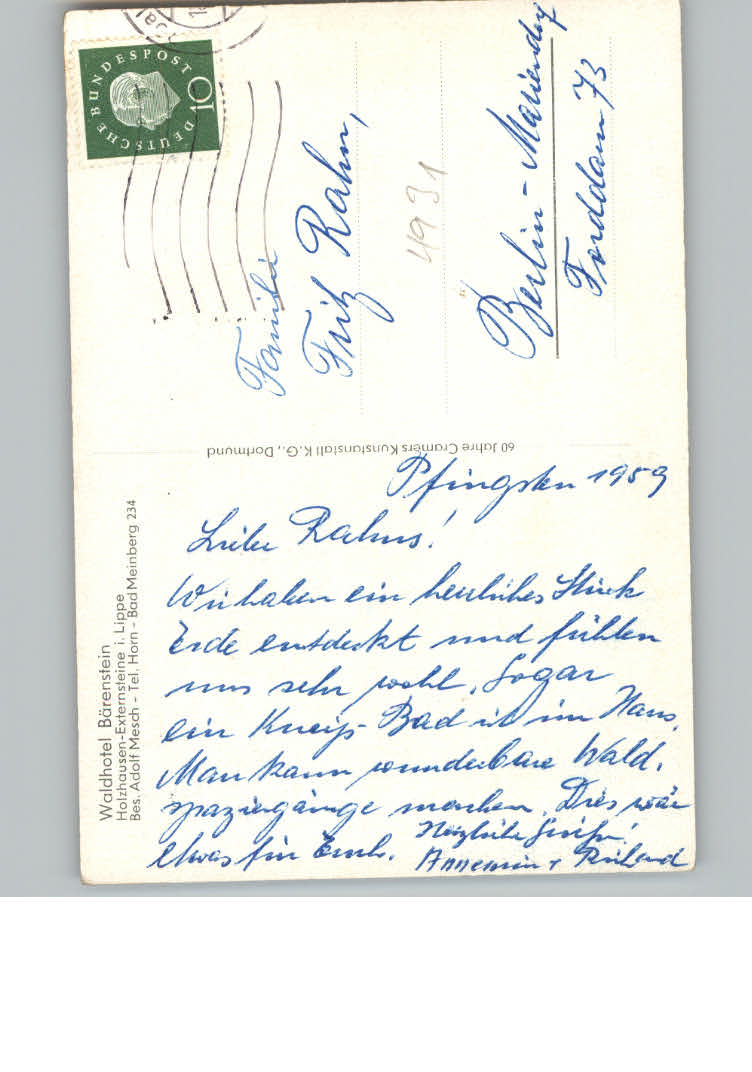 Waldhotel Bärenstein
Holzhausen-Externsteine i. Lippe
Bes. Adolf Mesch - Tel. Horn - Bad Meinberg 234
Pfingsten 1959
Liebe Rahns!
Wir haben ein herrliches Stück
Erde entdeckt und fühlen
uns sehr wohl. Sogar
ein Kneip-Bad ist im Haus.
Man kann wunderbare Wald-
spaziergänge machen. Dies wär
etwas für Euch.
Herzliche Grüße!
Annemarie +
60 Jahre Cramers Kunstanstalt K.G., Dortmund
DEUTSCHE BUNDESPOST
10
Familie
Fritz Rahn,
4931
Berlin-Mariendorf
Forddamm 73